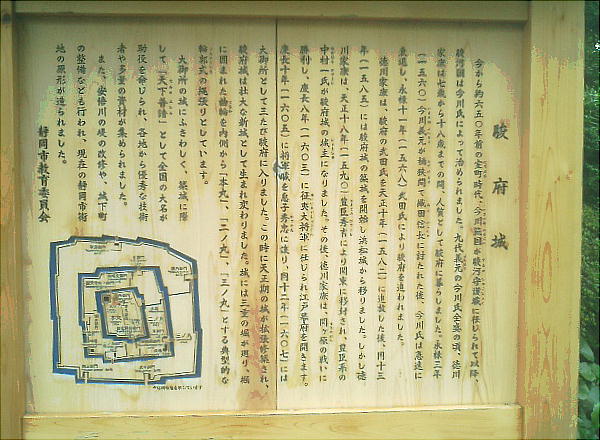 駿府城
今から約六五〇年前の室町時代、今川範国が駿河守護職に任じられて以降、
駿河国は今川氏によって治められました。九代義元の今川氏全盛の頃、徳川
家康は七歳から十八歳までの間、人質として駿府に暮らしました。永禄三年
(一五六〇)今川義元が桶狭間で織田信長に討たれた後、今川氏は急速に
衰退し、永禄十一年(一五六八)武田氏により駿府を追われました。
徳川家康は、駿府の武田氏を天正十年(一五八二)に追放した後、同十三
年(一五八五)には駿府城の築城を開始し浜松城から移りました。しかし徳
川家康は、天正十八年(一五九〇)豊臣秀吉により関東に移封され、豊臣系の
中村一氏が駿府城の城主になりました。その後、徳川家康は、関ヶ原の戦いに
勝利し、慶長八年(一六〇三)に征夷大将軍に任じられ江戸幕府を開きます。
慶長十年(一六〇五)に将軍職を息子秀忠に譲り、同十二年(一六〇七)には
大御所として三たび駿府に入りました。この時に天正期の城が拡張修築され、
駿府城は壮大な新城として生まれ変わりました。城には三重の堀が廻り、堀
に囲まれた曲輪を内側から「本丸」、「二ノ丸」、「三ノ丸」とする典型的な
輪郭式の縄張りとしています。
大御所の城にふさわしくて、築城に際
して「天下普請」として全国の大名が
助役を命じられ、各地から優秀な技術
者や多量の資材が集められました。
また、安倍川の堤の改修や、城下町
の整備なども行われ、現在の静岡市街
地の原形が造られました。
静岡市教育委員会
三ノ丸